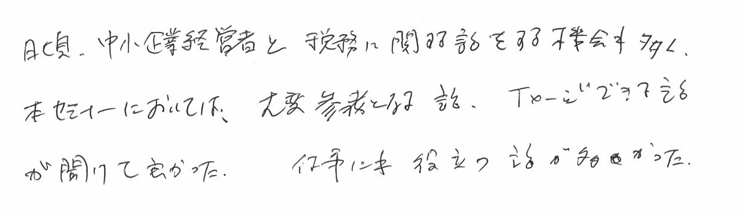 日頃、中小企業経営者と税務に関する話をする機会も多く、
本セミナーにおいては、大変参考となる話、イメージできる話
が聞けて良かった。 仕事にも役立つ話が多かった。